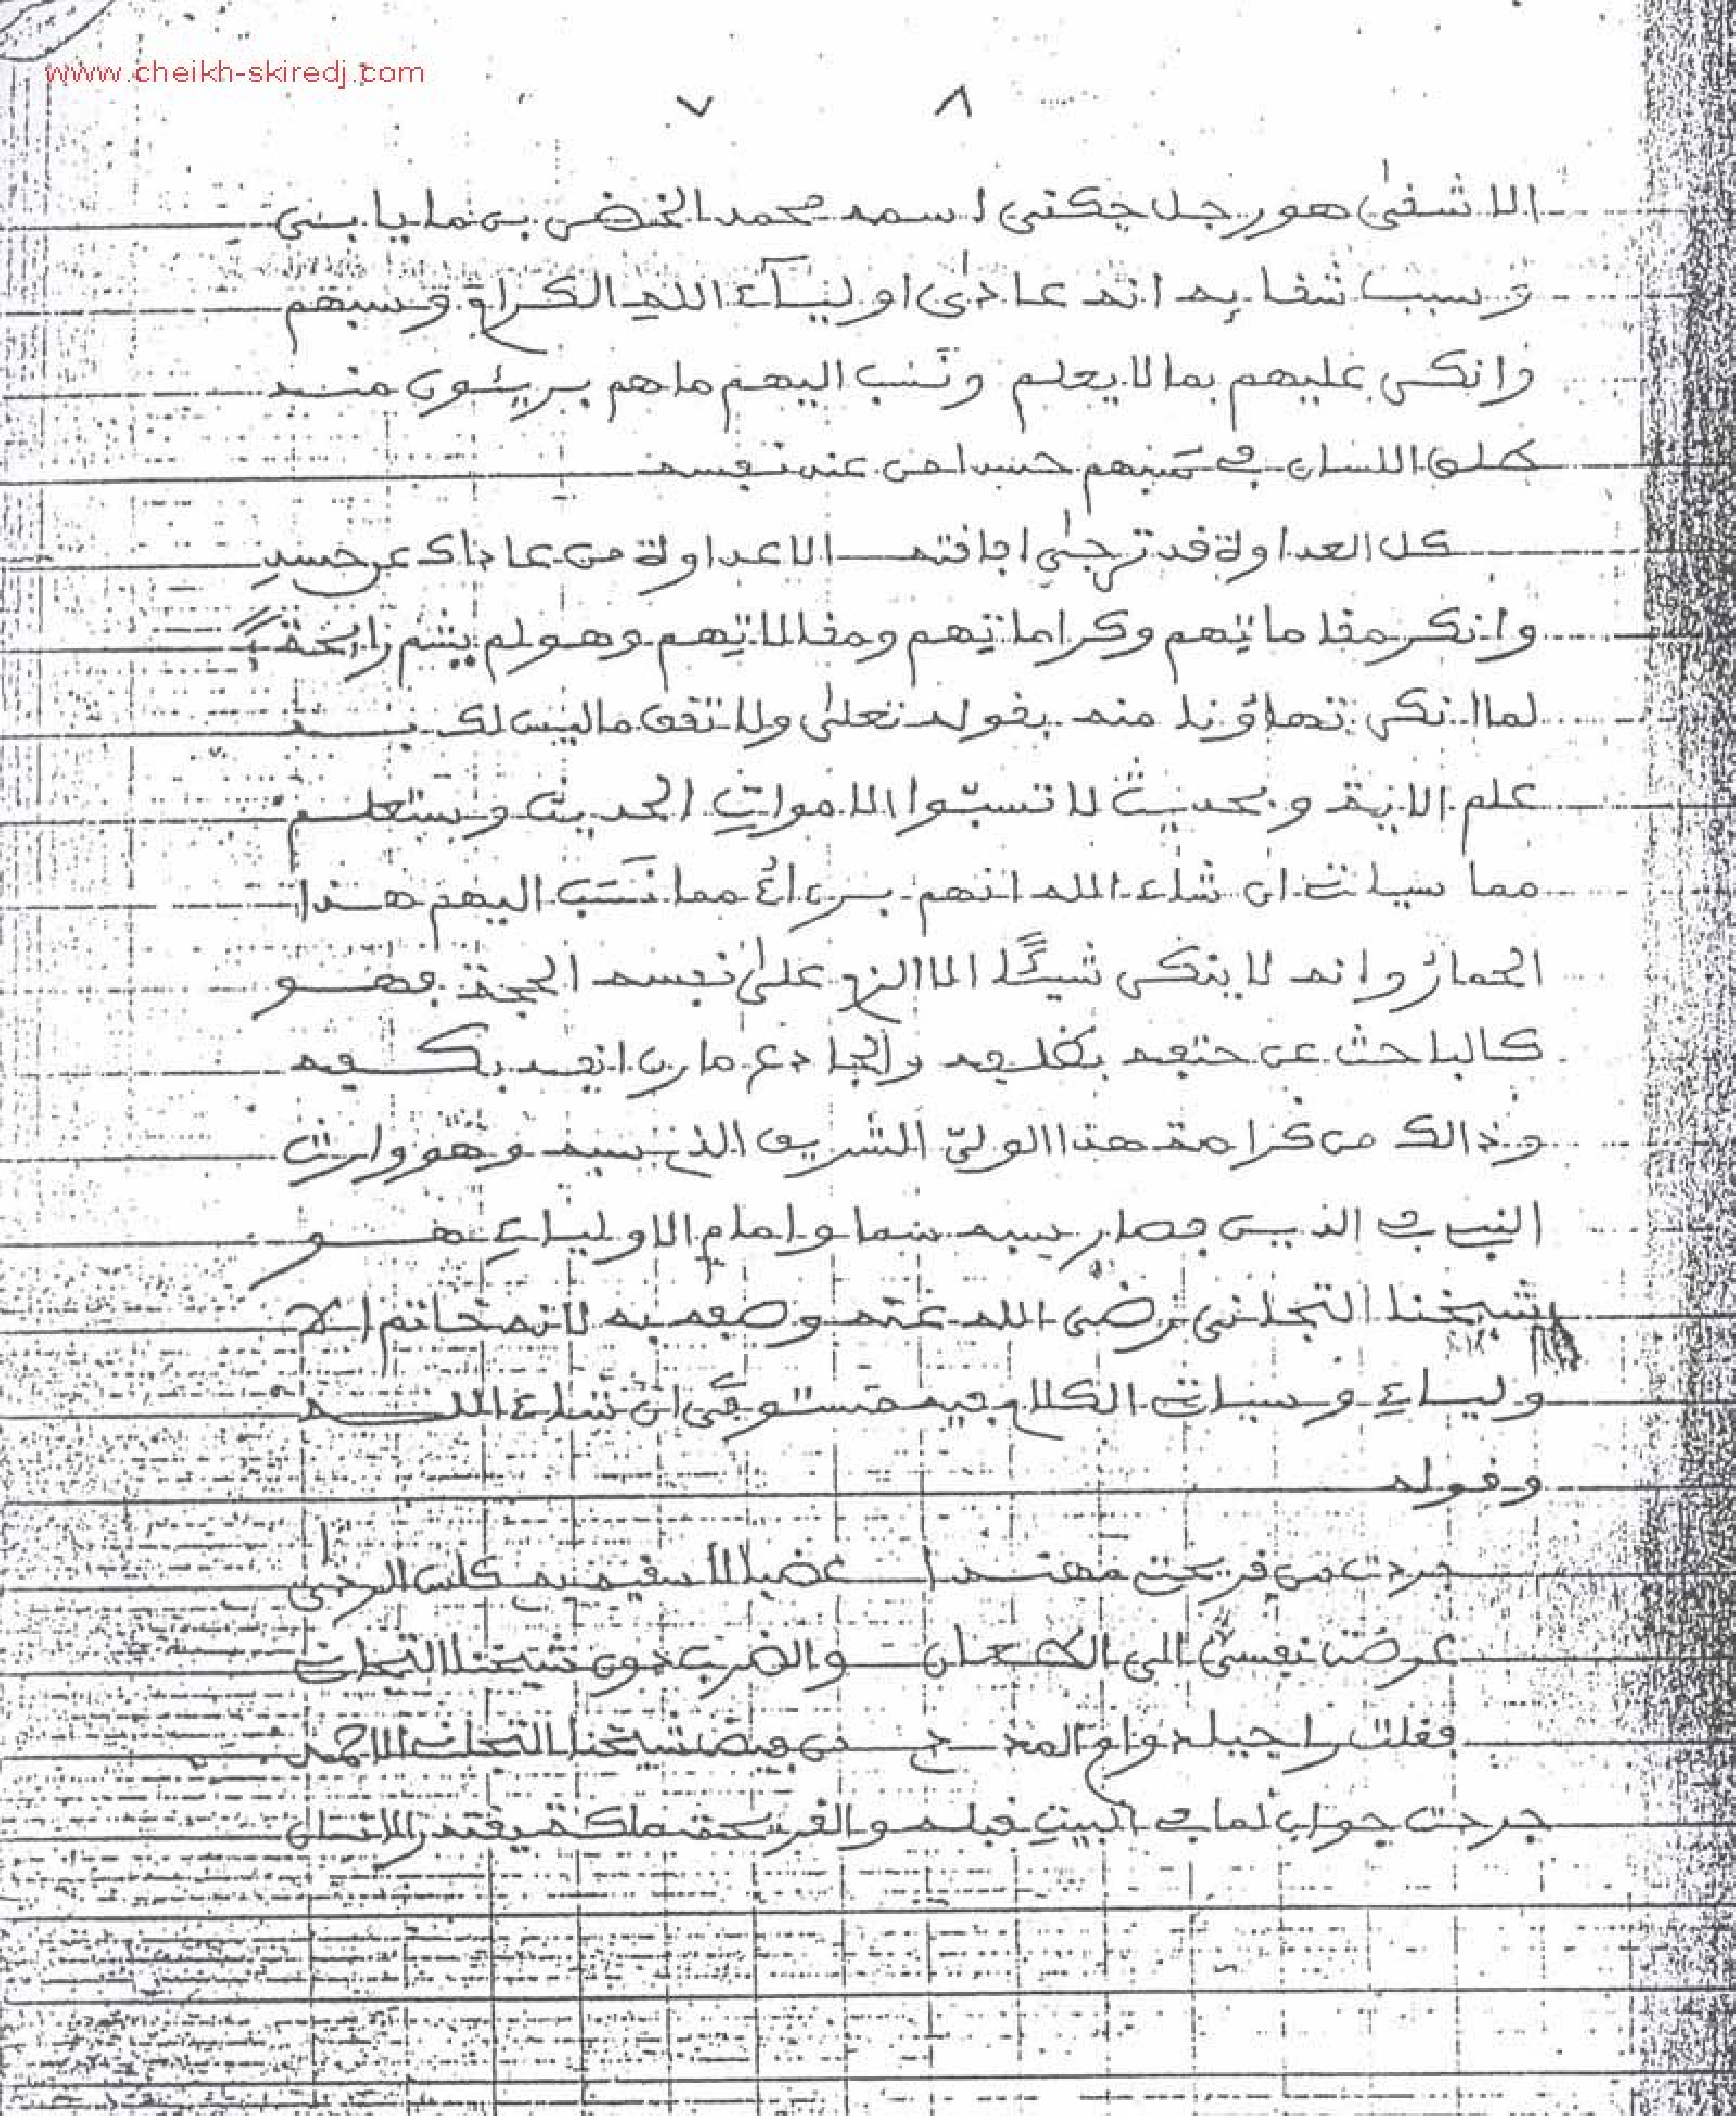 www.cheikh-skiredj.com
٧ ٨
الاشقى هو رجل جكني اسمه محمد الخضر بن مايابى
وسبب شقايه انه عادى اولياء الله الكرام وسبهم
وانكر عليهم بما لا يعلم ونسب اليهم ما هم بريئون منه
طلق اللسان في سبهم حسدا من عند نفسه
كل العداوة قد ترجى افاقته الا عداوة من عاداك عن حسد
وانكر مقاماتهم وكراماتهم ومقالاتهم وهو لم يشم رائحة
لما انكر تهاونا منه بقوله تعلى ولا تقف ما ليس لك به
علم الاية وبحديث لا تسبوا الاموات الحديث وستعلم
مما سيات ان شاء الله انهم برءاء مما نسب اليهم هذا
الحمار وانه لا ينكر شيئا الا الزم على نفسه الحجة فهو
كالباحث عن حتفه بظلفه والجادع مارن انفه بكفه
وذالك من كرامة هذا الولي الشريف الذي سبه وهو وارث
النبي في الذين فصار سبه سما وامام الاولياء هو
شيخنا التجاني رضي الله عنه وصفه به لانه خاتم الا
ولياء وسيات الكلام فيه مستوفى ان شاء الله
وقوله
جردت من قريحتي مهندا عضبا لاسقيه به كاس الردى
عرضت نفسي الى الطعان والضرب دون شيخنا التجان
فقلت راجيا دوام المدد من فيض شيخنا التجاني الاحمد
جردت جواب لما في البيت قبله والقريحة ملكة يقتدر الانسان